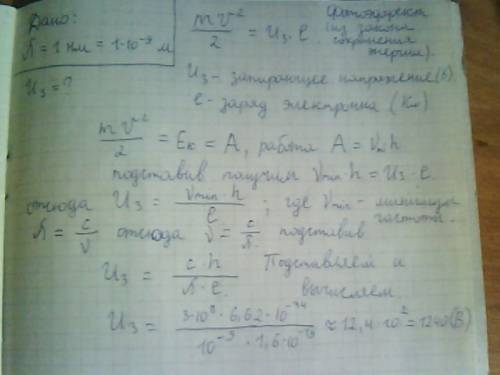 Дано:
λ = 1 нм = 1·10⁻⁹ м
U₃ = ?
mv²/2 = U₃·e
Фотоэффект
(из закона
сохранения
энергии).
U₃ - запирающее напряжение (В)
e - заряд электрона (Кл)
mv²/2 = Eк = A, работа A = νₘh
подставив получим νmin·h = U₃·e
отсюда U₃ = νmin·h/e ; где νmin - минимал
частота.
λ = c/ν отсюда ν = c/λ подставив
U₃ = c·h/λ·e Подставляем и
вычисляем.
U₃ = 3·10⁸·6,62·10⁻³⁴/10⁻⁹·1,6·10⁻¹⁹ ≈ 12,4·10² = 1240(В)